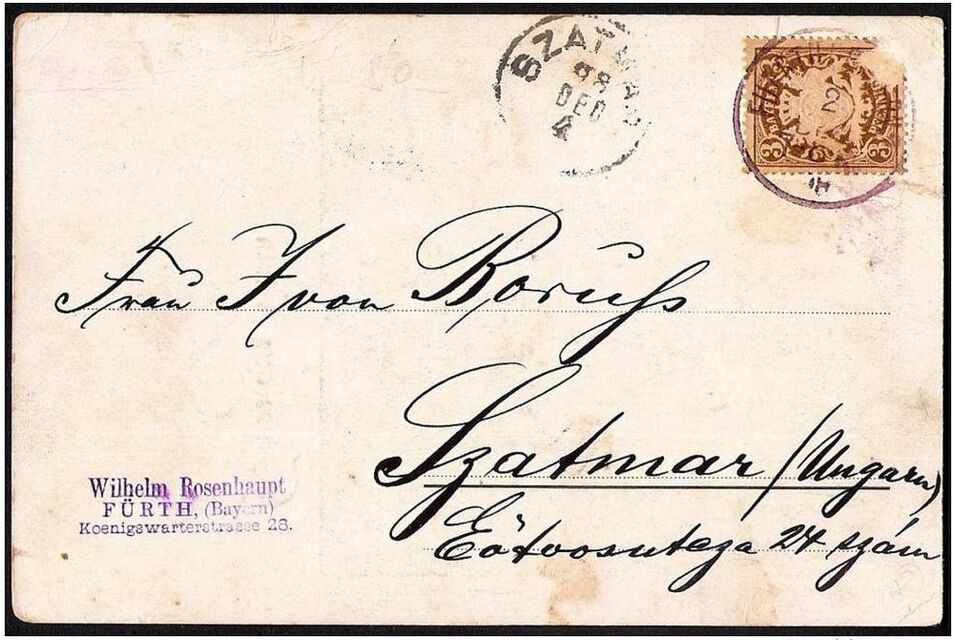 SZATMÁR
98
DEC
4
3 3
2
Frau J von Boruhs
Szatmar (Ungarn)
Eötvosutcza 24 szám
Wilhelm Rosenhaupt
FÜRTH, (Bayern)
Koenigswarterstrasse 26.